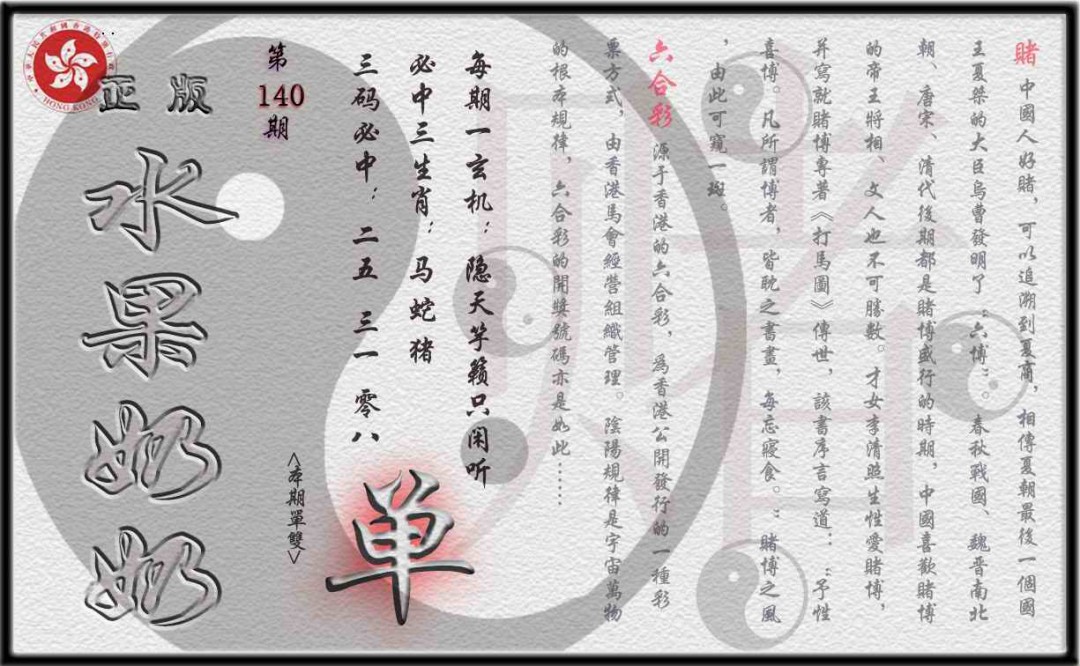 賭 中國人好賭，可以追溯到夏商，相傳夏朝最後一個國
王夏桀的大臣烏曹發明了“六博”。春秋戰國、魏晋南北
朝、唐宋、清代後期都是賭博盛行的時期，中國喜歡賭博
的帝王將相、文人也不可勝數。才女李清照生性愛賭博，
并寫就賭博專著《打馬圖》傳世，該書序言寫道：“予性
喜博。凡所謂博者，皆耽之書畫，每忘寢食。”賭博之風
，由此可窺一斑。
六合彩 源于香港的六合彩，爲香港公開發行的一種彩
票方式，由香港馬會經營組織管理。陰陽規律是宇宙萬物
的根本規律，六合彩的開獎號碼亦是如此……
每期一玄机：隐天竽籁只闲听
必中三生肖：马蛇猪
三码必中：二五 三一 零八
单
<本期單雙>
第140期
正版
水果奶奶
HONG KONG